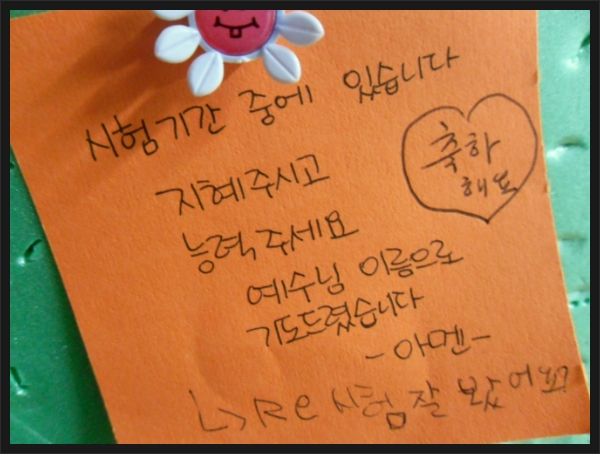 시험기간 중에 있습니다
축하
해요
지혜주시고
능력주세요
예수님 이름으로
기도드렸습니다
-아멘-
L>Re 시험 잘 봤어요?